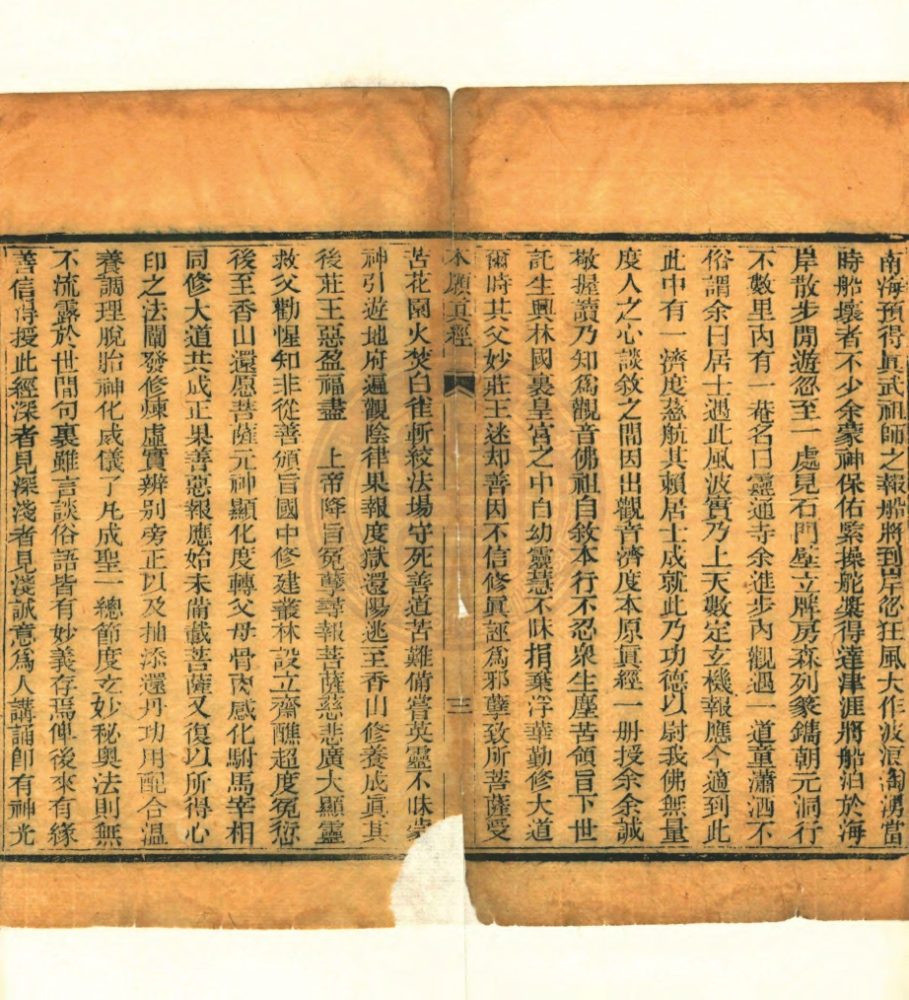 南海預得眞武祖師之報船將到岸忽狂風大作波浪淘湧當
時船壞者不少余蒙神保佑緊操舵槳得達津涯將船泊於海
岸散步閒遊忽至一處見石門壁立牌房森列篆鐫朝元洞行
不數里內有一菴名曰靈通寺余進步內觀遇一道童瀟洒不
俗謂余曰居士遇此風波實乃上天數定玄機報應今適到此
此中有一濟度慈航其賴居士成就此乃功德以尉我佛無量
度人之心談敘之間因出觀音濟度本原眞經一册授余余誠
敬握讀乃知爲觀音佛祖自敘本行不忍衆生塵苦領旨下世
託生興林國裏皇宮之中自幼靈慧不昧捐棄浮華勤修大道
爾時其父妙莊王迷却善因不信修眞誣爲邪孽致所菩薩受
本願眞經 三
苦花園火焚白雀斬絞法場守死善道苦難備嘗英靈不昧
神引遊地府遍觀陰律果報度獄還陽逃至香山修養成眞其
後莊王惡盈福盡 上帝降旨冤孽尋報菩薩慈悲廣大顯靈
救父勸惺知非從善頒旨國中修建叢林設立齋醮超度冤愆
後至香山還愿菩薩元神顯化度轉父母骨肉感化駙馬宰相
同修大道共成正果善惡報應始末備載菩薩又復以所得心
印之法闡發修煉虛實辨別旁正以及抽添還丹功用配合溫
養調理脫胎神化威儀了凡成聖一總節度玄妙秘奧法則無
不流露於世間句裏雖言談俗語皆有妙義存焉俾後來有緣
善信得授此經深者見深淺者見淺誠意爲人講誦卽有神光